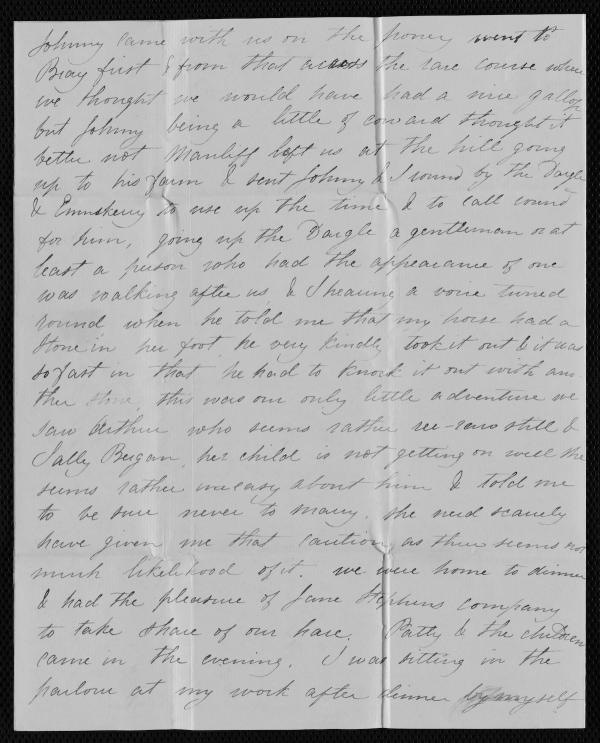 Johnny came with us on the poney went to
Bray first & from that across the race course where
we thought we would have had a nice gallop
but Johnny being a little of coward thought it
better not Manliff left us at the hill going
up to his farm & sent Johnny & I round by the Dargle
& Enniskerry to use up the time & to call round
for him, going up the Dargle a gentleman or at
least a person who had the appearance of one
was walking after us & I hearing a voice turned
round when he told me that my horse had a
stone in her foot he very kindly took it out & it was
so fast in that he had to knock it out with ano
ther stone, this was our only little adventure we
saw Arthur who seems rather see-saw still &
Sally Bergan, her child is not getting on well she
seems rather uneasy about him & told me
to be sure never to marry, she need scarcely
have given me that caution as there seems not
much likelihood of it. we were home to dinner
& had the pleasure of Jane Stephens company
to take share of our hare. Patty & the children
came in the evening. I was sitting in the
parlour at my work after dinner by myself